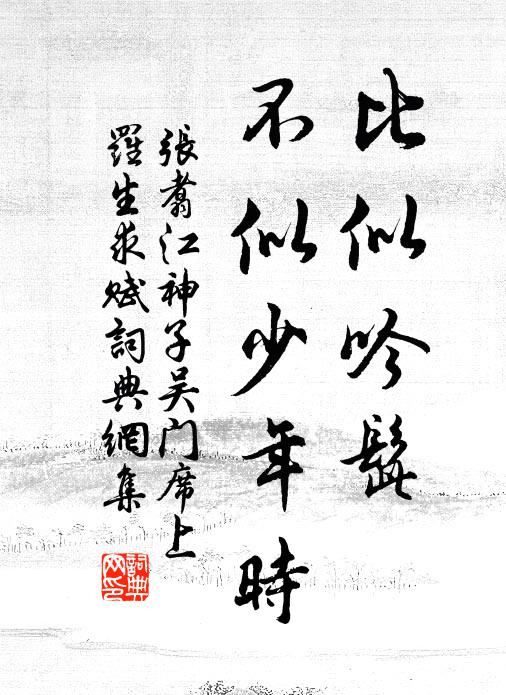 比似吟髭
不似少年時
張翥江神子吴门席上
羅生求赋詞典網集
詞典
网印